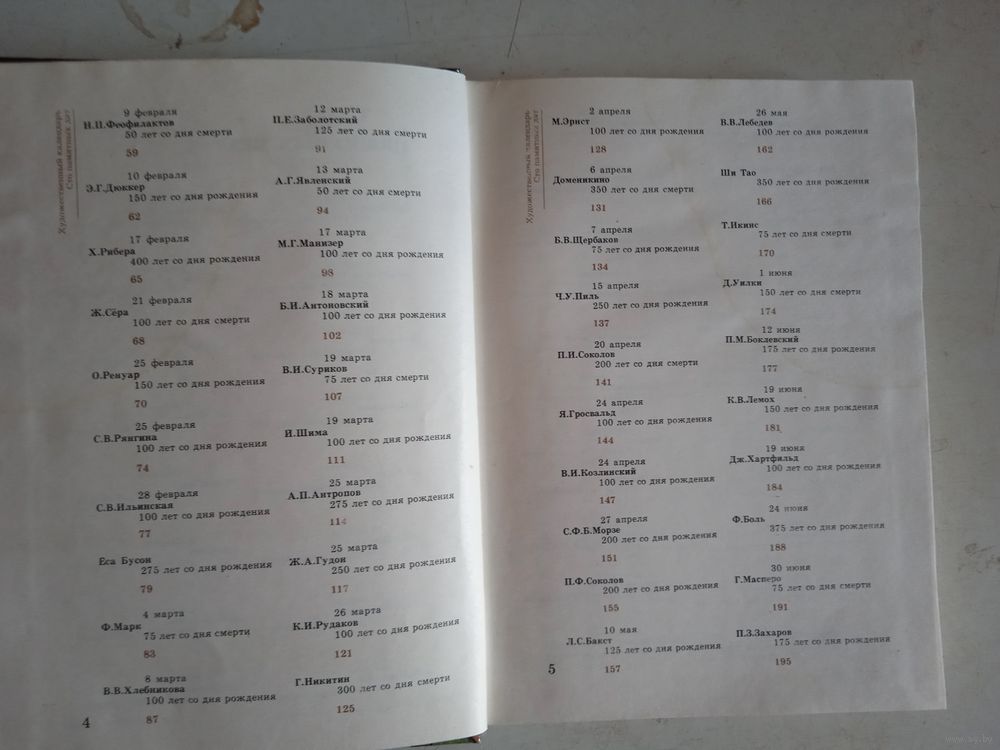 Художественный календарь
Сто памятных дат
9 февраля
Н.П.Феофилактов
50 лет со дня смерти
59
10 февраля
Э.Г.Дюккер
150 лет со дня рождения
62
17 февраля
Х.Рибера
400 лет со дня рождения
65
21 февраля
Ж.Сёра
100 лет со дня смерти
68
25 февраля
О.Ренуар
150 лет со дня рождения
70
25 февраля
С.В.Рянгина
100 лет со дня рождения
74
28 февраля
С.В.Ильинская
100 лет со дня рождения
77
Еса Бусон
275 лет со дня рождения
79
4 марта
Ф.Марк
75 лет со дня смерти
83
8 марта
В.В.Хлебникова
100 лет со дня рождения
87
4
12 марта
П.Е.Заболотский
125 лет со дня смерти
91
13 марта
А.Г.Явленский
50 лет со дня смерти
94
17 марта
М.Г.Манизер
100 лет со дня рождения
98
18 марта
Б.И.Антоновский
100 лет со дня рождения
102
19 марта
В.И.Суриков
75 лет со дня смерти
107
19 марта
И.Шима
100 лет со дня рождения
111
25 марта
А.П.Антропов
275 лет со дня рождения
114
25 марта
Ж.А.Гудон
250 лет со дня рождения
117
26 марта
К.И.Рудаков
100 лет со дня рождения
121
Г.Никитин
300 лет со дня смерти
125
Художественный календарь
Сто памятных дат
2 апреля
М.Эрнст
100 лет со дня рождения
128
6 апреля
Доменикино
350 лет со дня смерти
131
7 апреля
Б.В.Щербаков
75 лет со дня рождения
134
15 апреля
Ч.У.Пиль
250 лет со дня рождения
137
20 апреля
П.И.Соколов
200 лет со дня смерти
141
24 апреля
Я.Гросвальд
100 лет со дня рождения
144
24 апреля
В.И.Козлинский
100 лет со дня рождения
147
27 апреля
С.Ф.Б.Морзе
200 лет со дня рождения
151
П.Ф.Соколов
200 лет со дня рождения
155
10 мая
Л.С.Бакст
125 лет со дня рождения
157
5
26 мая
В.В.Лебедев
100 лет со дня рождения
162
Ши Тао
350 лет со дня рождения
166
Т.Икинс
75 лет со дня смерти
170
1 июня
Д.Уилки
150 лет со дня смерти
174
12 июня
П.М.Боклевский
175 лет со дня рождения
177
19 июня
К.В.Лемох
150 лет со дня рождения
181
19 июня
Дж.Хартфильд
100 лет со дня рождения
184
24 июня
Ф.Боль
375 лет со дня рождения
188
30 июня
Г.Масперо
75 лет со дня смерти
191
П.З.Захаров
175 лет со дня рождения
195
www.ay.by